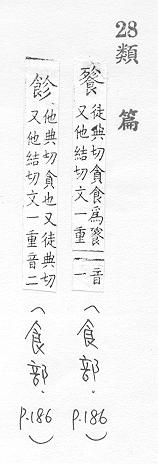 28類篇
飻 徒典切貪食為飻
又他結切文一重音一
(食部. P.186)
飻 他典切貪也又徒典切
又他結切文一重音二
(食部. P.186)